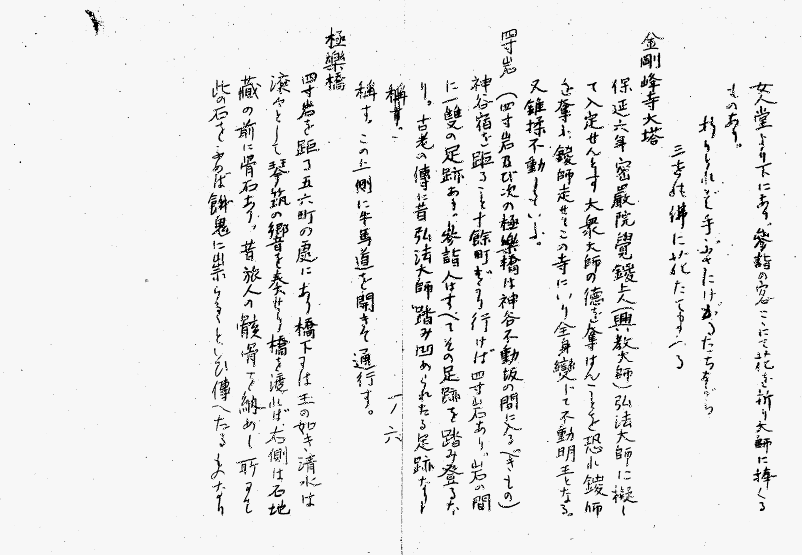 女人堂より下にあり。參詣の客ここにて花を祈り大師に捧くる
ものあり。
折りとれば手ぶさにけがるたちながら
三世の佛に花たてまつる
金剛峰寺大塔
保延六年密嚴院覺鑁上人(興教大師)弘法大師に擬し
て入定せんとす大衆大師の德を奪はんことを恐れ鑁師
を奪ふ、鑁師走せてこの寺にいり全身變じて不動明王となる。
又錐揉不動といふ。
四寸岩 (四寸岩及び次の極樂橋は神谷不動坂の間に入るべきもの)
神谷宿を距ること十餘町ばかり行けば四寸岩あり、岩の間
に一雙の足跡あり。參詣人はすべてその足跡を踏み登るな
り。古老の傳に昔弘法大師踏み凹められたる足跡なりと
稱す。
稱す。この上側に牛馬道を開きて通行す。
一ノ六
極樂橋
四寸岩を距る五六町の處にあり橋下には玉の如き清水は
滾々として琴筑の響を奏せり橋を渡れば右側は石地
藏の前に骨石あり、昔旅人の骸骨を納めし所にて
此の石をふめば餓鬼に祟らるといひ傳へたるものなり